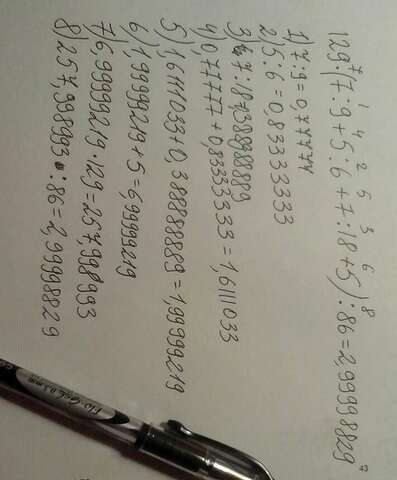 129·(7:9+5:6+7:18+5):86=2,99998829
7 1 4 2 5 3 6 8
1) 7:9=0,77777
2) 5:6=0,83333333
3) 7:18=0,388888889
4) 0,77777+0,8333333=1,6111033
5) 1,6111033+0,388888889=1,99999219
6) 1,99999219+5=6,99999219
7) 6,99999219·129=257,998993
8) 257,998993:86=2,99998829
43